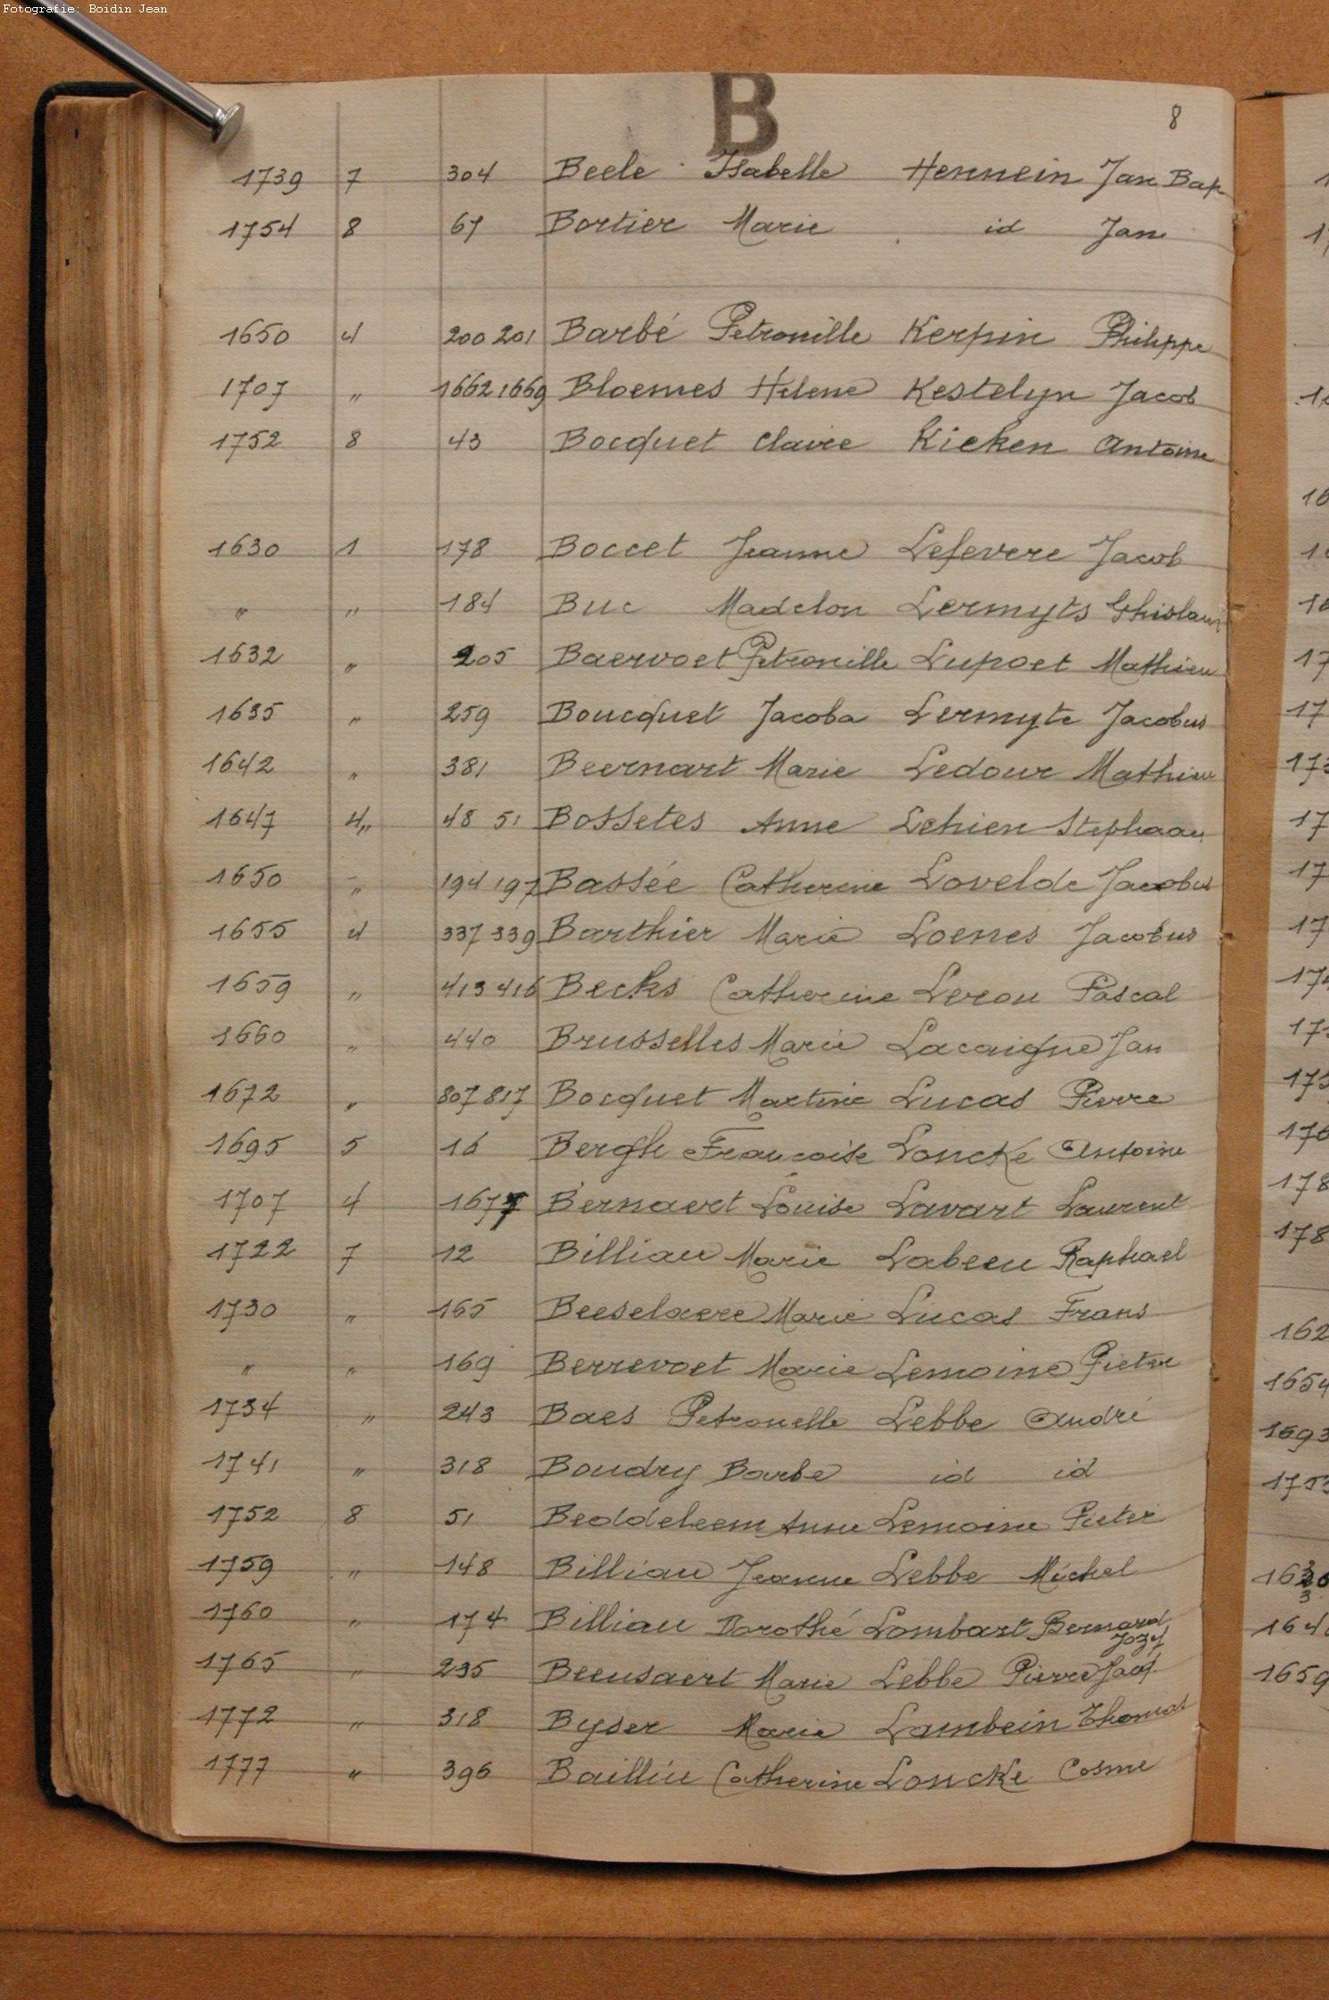 Fotografie: Boidin Jean
B
8
1739 7 304 Beele Isabelle Hennein Jan Bap
1754 8 67 Bortier Marie id Jan
1650 4 200 201 Barbé Petronille Kerpin Philippe
1707 " 1662 1669 Bloemes Helene Kestelyn Jacob
1752 8 43 Bocquet Claire Kieken Antoine
1630 1 178 Boccet Jeanne Lefevere Jacob
" " 184 Buc Madelon Lermyts Ghislain
1632 " 205 Baervoet Petronille Lupoet Mathieu
1635 " 259 Boucquet Jacoba Lermyte Jacobus
1642 " 381 Beernart Marie Ledour Mathieu
1647 4 " 48 51 Bossetes Anne Lehien Stephaan
1650 " 194 197 Bassée Catherine Lovelde Jacobus
1655 4 337 339 Barthier Marie Loenes Jacobus
1659 " 413 416 Becks Catherine Lerou Pascal
1660 " 440 Brusselles Marie Lacaigne Jan
1672 " 807 817 Bocquet Martine Lucas Pierre
1695 5 16 Bergh Francoise Loncke Antoine
1707 4 1677 Bernaert Louise Lavart Laurent
1722 7 12 Billiau Marie Labeeu Raphael
1730 " 165 Beeselaere Marie Lucas Frans
" " 169 Berrevoet Marie Lemoine Pieter
1734 " 243 Baes Petronelle Lebbe André
1741 " 318 Boudry Barbe id id
1752 8 51 Beddeleem Anne Lemoine Pieter
1759 " 148 Billiau Jeanne Lebbe Michel
1760 " 174 Billiau Dorothé Lombart Bernard
Jozef
1765 " 235 Beeusaert Marie Lebbe Pierre Jacq
1772 " 318 Byser Marie Lambein Thomas
1777 " 396 Baillie Catherine Loncke Cosme